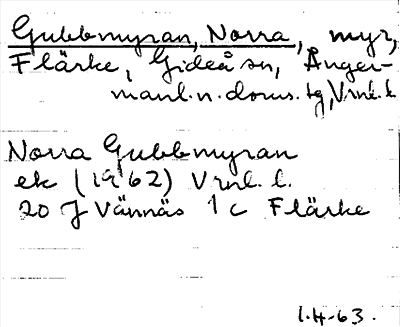 Gubbmyran, Norra, myr,
Flärke, Gideå sn, Ånger-
manl. n. doms. tg, Vrnl. l.
Norra Gubbmyran
ek (1962) Vrnl. l.
20 J Vännäs 1 c Flärke
1.4-63.